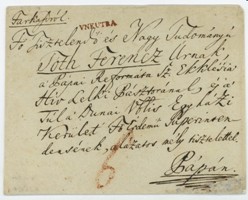 Farkasfáról.
UNKUTRA
Fő Tiszteletű és Nagy Tudományú
Tóth Ferencz Úrnak,
a Pápai Reformata Sz. Ekklésia
Hív Lelki Pásztorának, s a
Túl a Dunai Vtlis Egyházi
Kerület Fő Érdemű Superinten
densének, alázatos mély tisztelettel
Pápán.